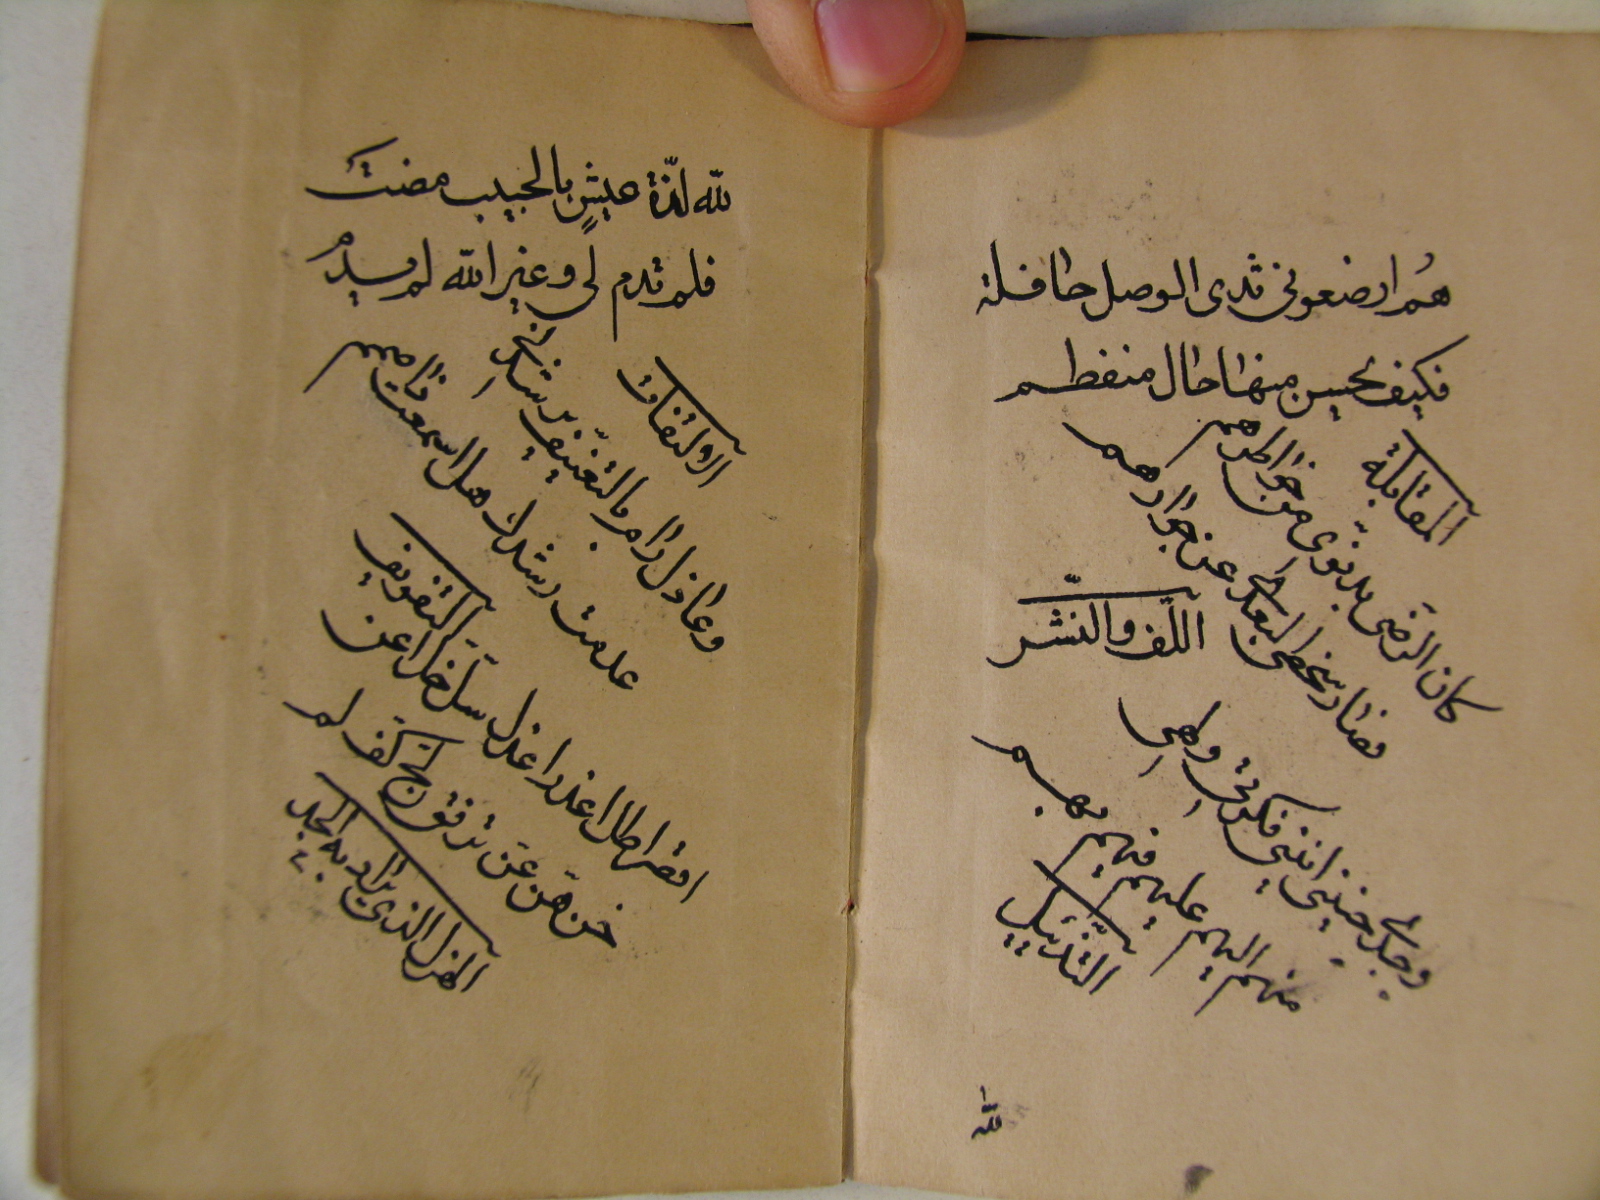 هُم ارضعوني ثدى الوصل حافلة
فكيف يحسن منها حال منفطم
المقابلة
كان الرضى بدنوّى من خواطرهم
فصار سخطى لبعدى عن جوارهم
اللّف والنّشر
وجدى حنينى انينى فكرتى ولهى
منهم اليهم عليهم فيهم بهم
التّذييل
لله
لله لذّة عيشٍ بالحبيب مضت
فلم تدم لى وغير الله لم يدم
الالتفات
وعاذل رام بالتعنيف يرشدنى
عدمت رشدك هل اسمعت ذا صمم
التفويف
اقصر اطل اعذر اعذل سلّ خلّ اعن
خن هن عن ترفق لج كفّ لم
الهزل الذى يراد به الجد